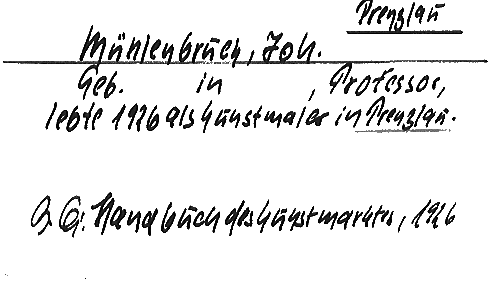 Prenzlau
Mühlenbruch, Joh.
Geb. in , Professor,
lebte 1926 als Kunstmaler in Prenzlau.
Handbuch des Kunstmarktes, 1926